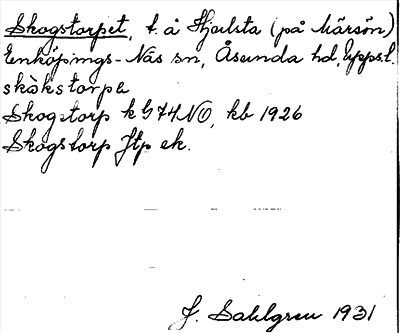 Skogstorpet, t. å Hjulsta (på Märsön)
Enköpings-Näs sn, Åsunda hd, Upps. l.
skòkstorpe
Skogstorp k G74NO, kb 1926
Skogstorp Jtp ek.
J. Sahlgren 1931